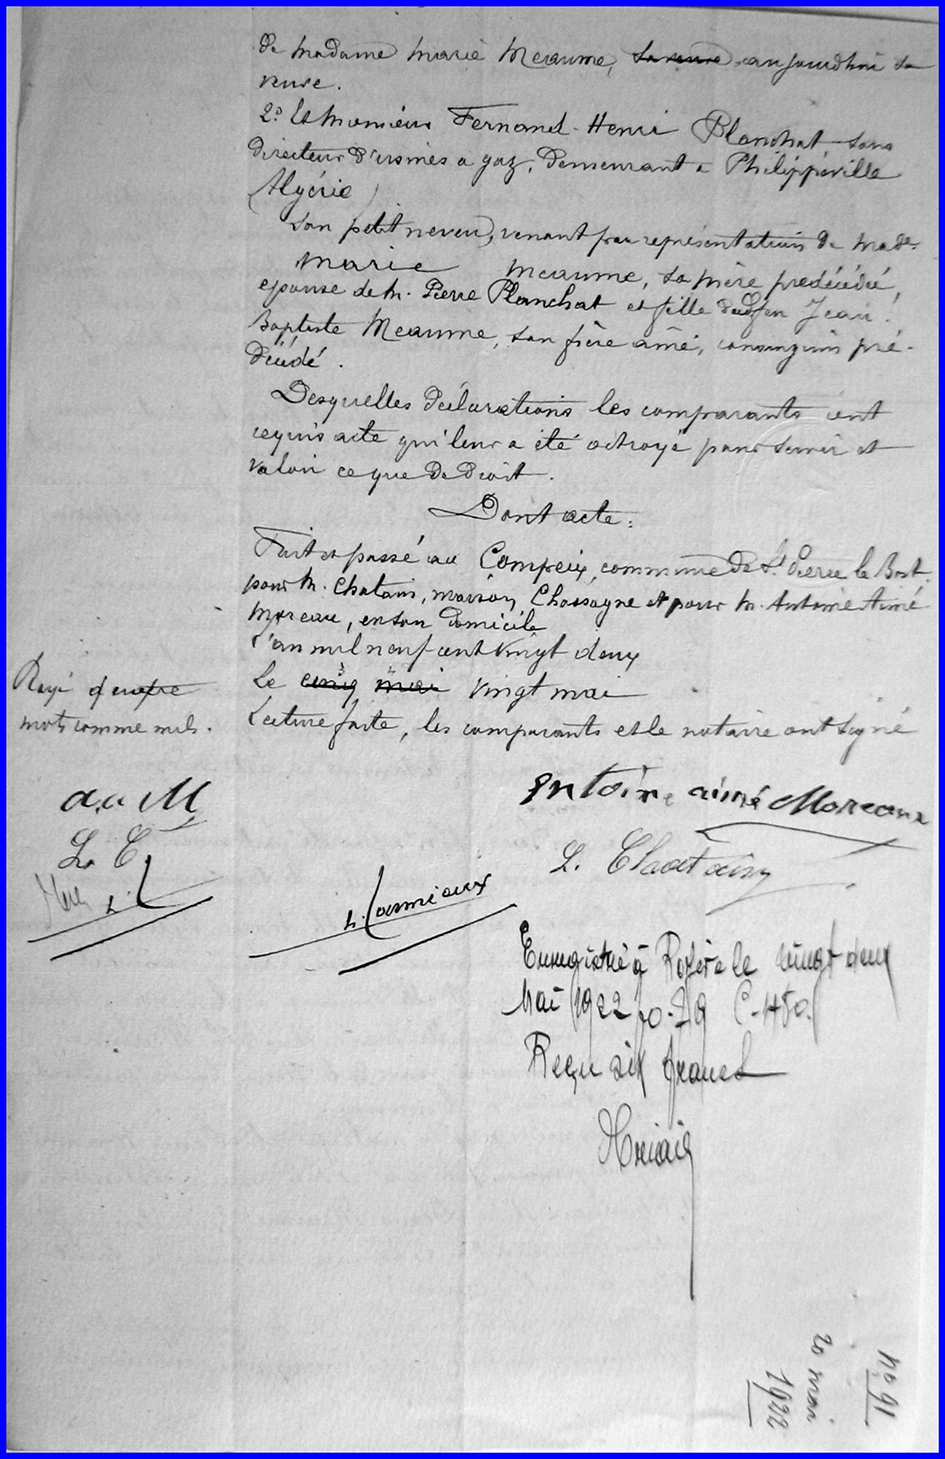 de madame Marie Meaume, sa veuve aujourdhui sa
veuve.
2º Et Monsieur Fernand-Henri Planchat, sous
directeur d'usines a gaz, demeurant a Philippeville
(Algérie)
Son petit neveu, venant par représentation de Made
Marie Meaume, sa mère predécédée,
epouse de M. Pierre Planchat et fille de feu Jean
Baptiste Meaume, son frère ainé, consanguin pré-
décédé.
Desquelles déclarations les comparants ont
requis acte qui leur a été octroyé pour servir et
valoir ce que de droit.
Dont acte:
Fait et passé au Compeix, commune de St Pierre le Bost
pour M. Chatain, maison Chassagne et pour M. Antoine Aimé
Moreau, en son domicile
L'an mil neuf cent vingt deux
Le cinq mai vingt mai
Lecture faite, les comparants et le notaire ont signé
Rayé quatre
mots comme nuls.
a.a M
L. C
Antoine aimé Moreaux
L. Chatain
L. Carmiaux
Enregistré à Royère le vingt deux
Mai 1922 fo. 29 C. 450.
Reçu six francs
No. 91
20 mai
1922